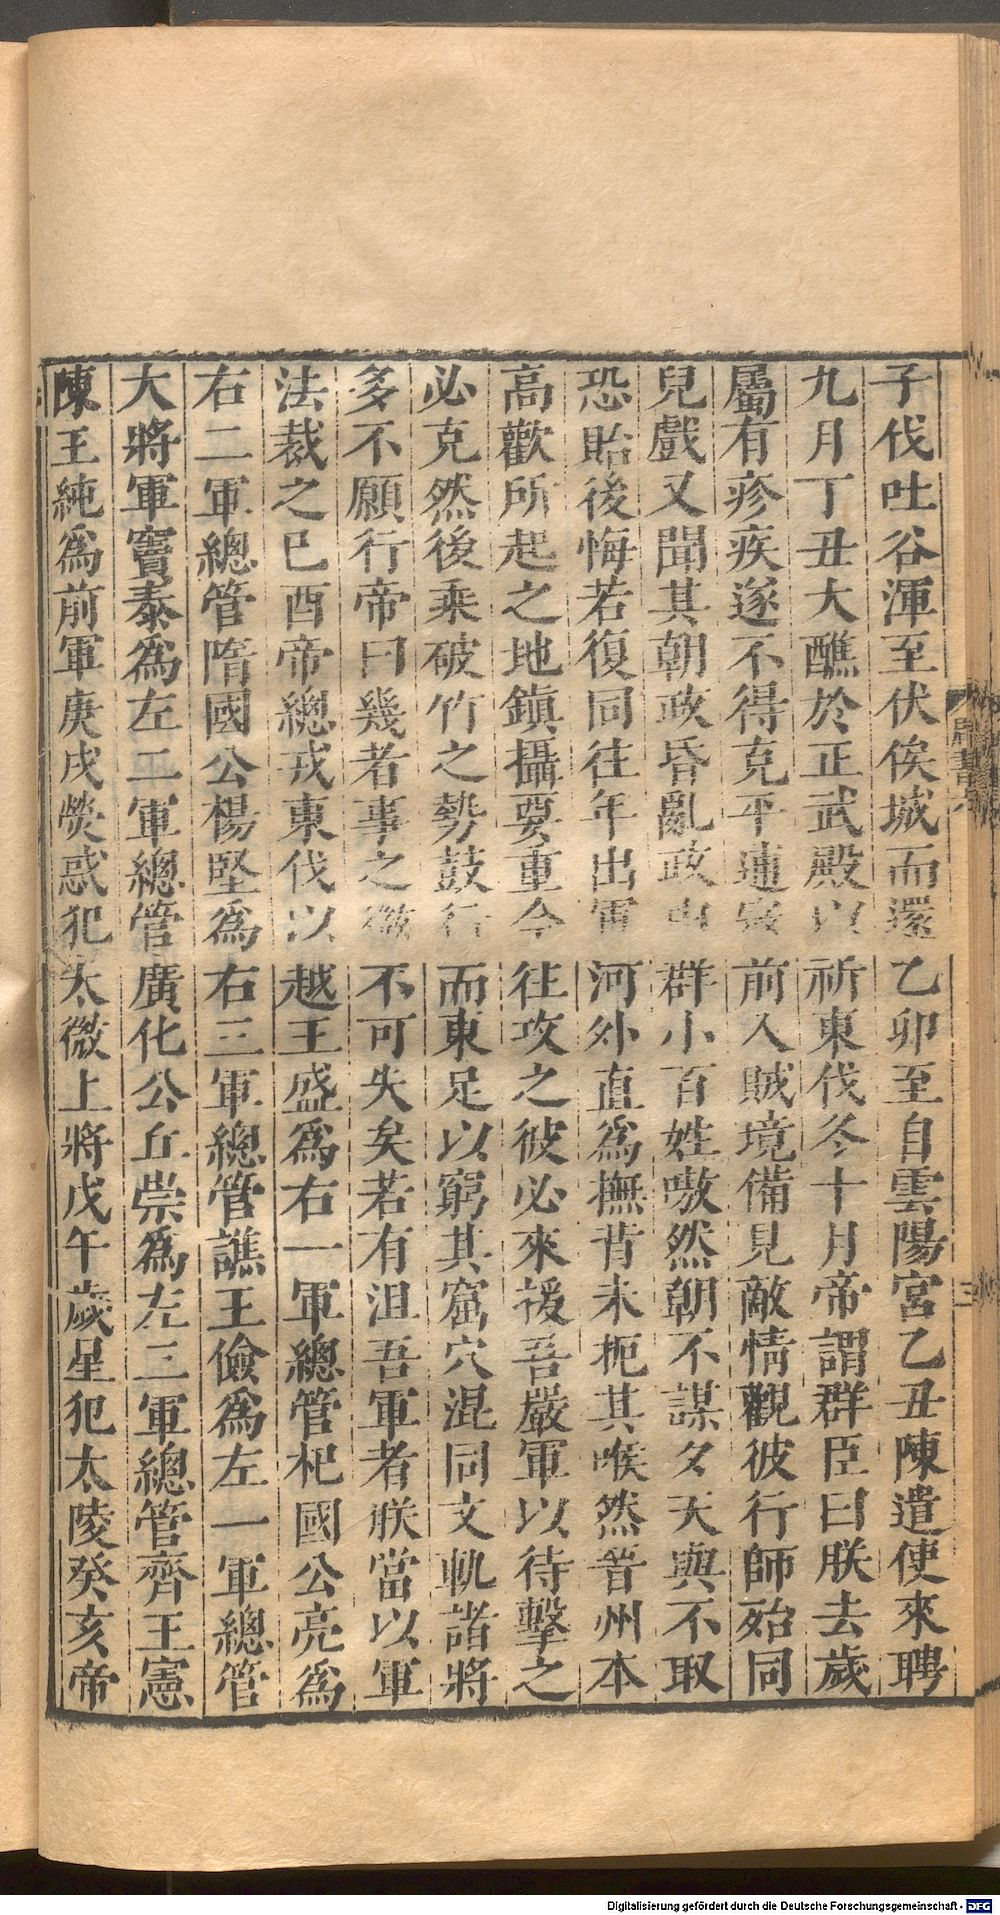 子伐吐谷渾至伏俟城而還乙卯至自雲陽宮乙丑陳遣使來聘
九月丁丑大醮於正武殿以祈東伐冬十月帝謂群臣曰朕去歲
屬有疹疾遂不得克平逋寇前入賊境備見敵情觀彼行師殆同
兒戲又聞其朝政昏亂政由群小百姓嗷然朝不謀夕天與不取
恐貽後悔若復同往年出軍河外直為撫背未扼其喉然晉州本
高歡所起之地鎮攝要重今往攻之彼必來援吾嚴軍以待擊之
必克然後乘破竹之勢鼓行而東足以窮其窟穴混同文軌諸將
多不願行帝曰幾者事之微不可失矣若有沮吾軍者朕當以軍
法裁之已酉帝總戎東伐以越王盛為右一軍總管杞國公亮為
右二軍總管隋國公楊堅為右三軍總管譙王儉為左一軍總管
大將軍竇泰為左二軍總管廣化公丘崇為左三軍總管齊王憲
陳王純為前軍庚戌熒惑犯太微上將戊午歲星犯太陵癸亥帝
周書六
三
Digitalisierung gefördert durch die Deutsche Forschungsgemeinschaft - DFG